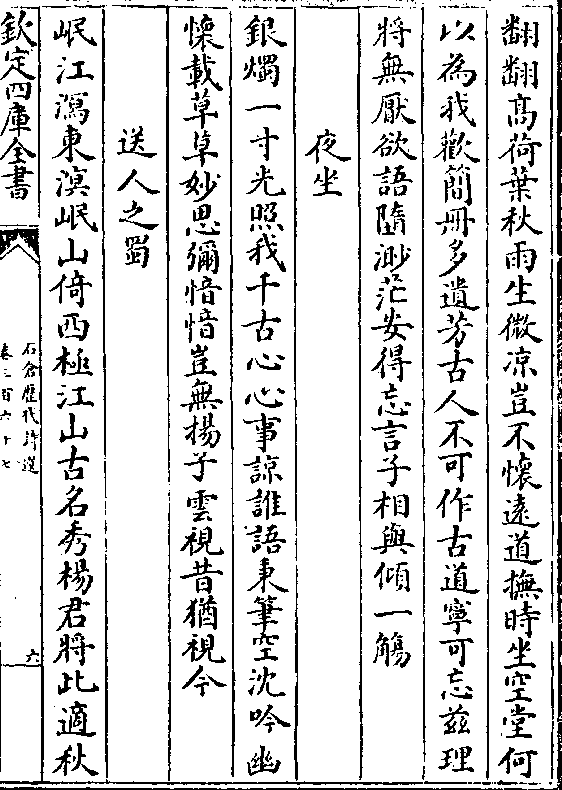 翻翻高荷葉秋雨生微凉豈不懷遠道撫時坐空堂何
以為我歡簡冊多遺芳古人不可作古道寧可忘兹理
將無厭欲語隨渺茫安得忘言子相與傾一觴
夜坐
銀燭一寸光照我千古心心事諒誰語秉筆空沈吟幽
懷載草草妙思彌愔愔豈無揚子雲視昔猶視今
送人之蜀
岷江瀉東溟岷山倚西極江山古名秀楊君將此適秋
欽定四庫全書
石倉歷代詩選
卷三百六十七
六